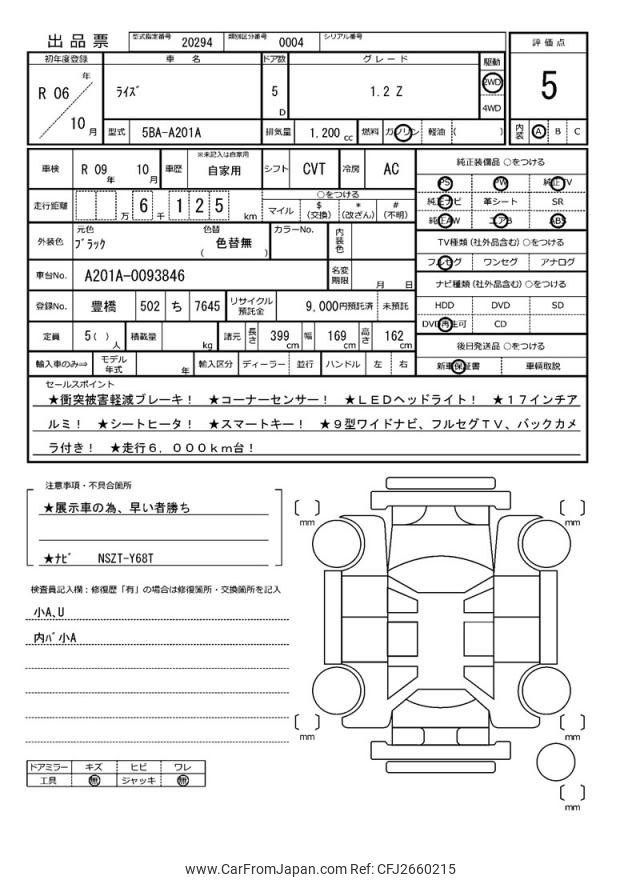 出品票 型式指定番号 20294 類別区分番号 0004 シリアル番号
評価点
5
内装 A B C
初年度登録 車名 ドア数 グレード 駆動
R 06 年 10 月
ﾗｲｽﾞ 5 D 1.2 Z 2WD 4WD
型式 5BA-A201A 排気量 1.200 cc 燃料 ガソリン 軽油 ( )
車検 R 09 年 10 月 車歴 ※未記入は自家用 自家用 シフト CVT 冷房 AC
走行距離 万 6 千 1 2 5 km ○をつける
マイル $(交換) *(改ざん) #(不明)
外装色 元色 ﾌﾞﾗｯｸ 色替 ( 色替無 ) カラーNo. 内装色
車台No. A201A-0093846 名変期限 月 日
登録No. 豊橋 502 ち 7645 リサイクル預託金 9,000円預託済 未預託
定員 5 ( ) 人 積載量 kg 諸元 長さ 399 cm 幅 169 cm 高さ 162 cm
輸入車のみ⇒ モデル年式 年 輸入区分 ディーラー 並行 ハンドル 左 右
純正装備品 ○をつける
PS PW 純正TV
純正ナビ 革シート SR
純正AW エアB ABS
TV種類(社外品含む)○をつける
フルセグ ワンセグ アナログ
ナビ種類(社外品含む)○をつける
HDD DVD SD
DVD再生可 CD
後日発送品 ○をつける
新車保証書 車輌取説
セールスポイント
★衝突被害軽減ブレーキ! ★コーナーセンサー! ★LEDヘッドライト! ★17インチア
ルミ! ★シートヒータ! ★スマートキー! ★9型ワイドナビ、フルセグTV、バックカメ
ラ付き! ★走行6,000km台!
注意事項・不具合箇所
★展示車の為、早い者勝ち
★ﾅﾋﾞ NSZT-Y68T
検査員記入欄:修復歴「有」の場合は修復箇所・交換箇所を記入
小A､U
内ﾊﾞ小A
ドアミラー キズ ヒビ ワレ
工具 無 ジャッキ 無
mm
mm
mm
mm
mm
www.CarFromJapan.com Ref: CFJ2660215